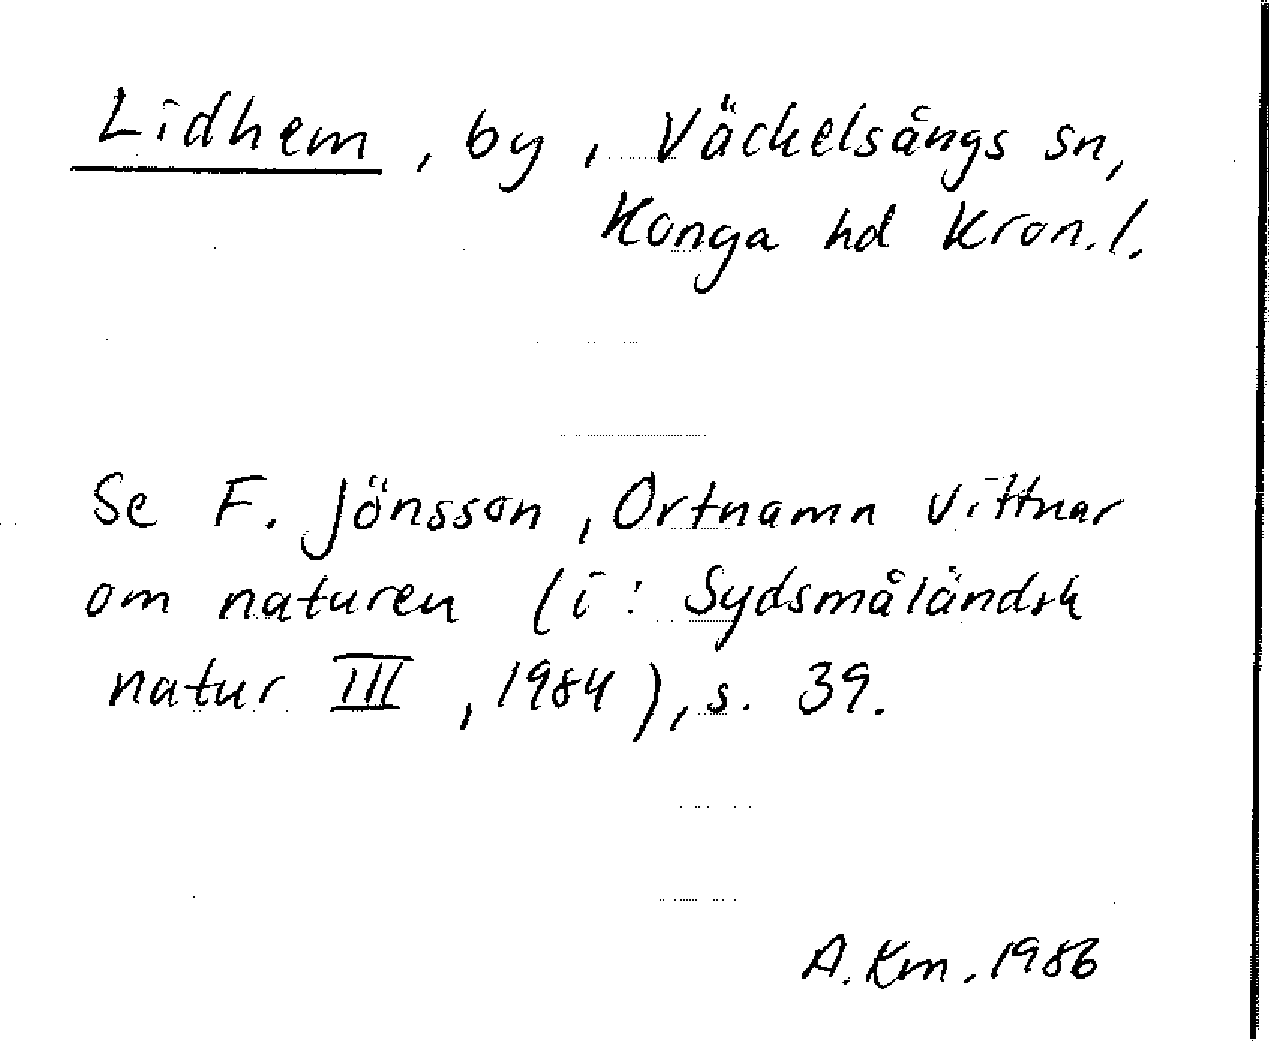 Lidhem, by, Väckelsångs sn,
Konga hd Kron.l.
Se F. Jönsson, Ortnamn vittnar
om naturen (i: Sydsmåländsk
natur III, 1984), s. 39.
A.Km. 1986